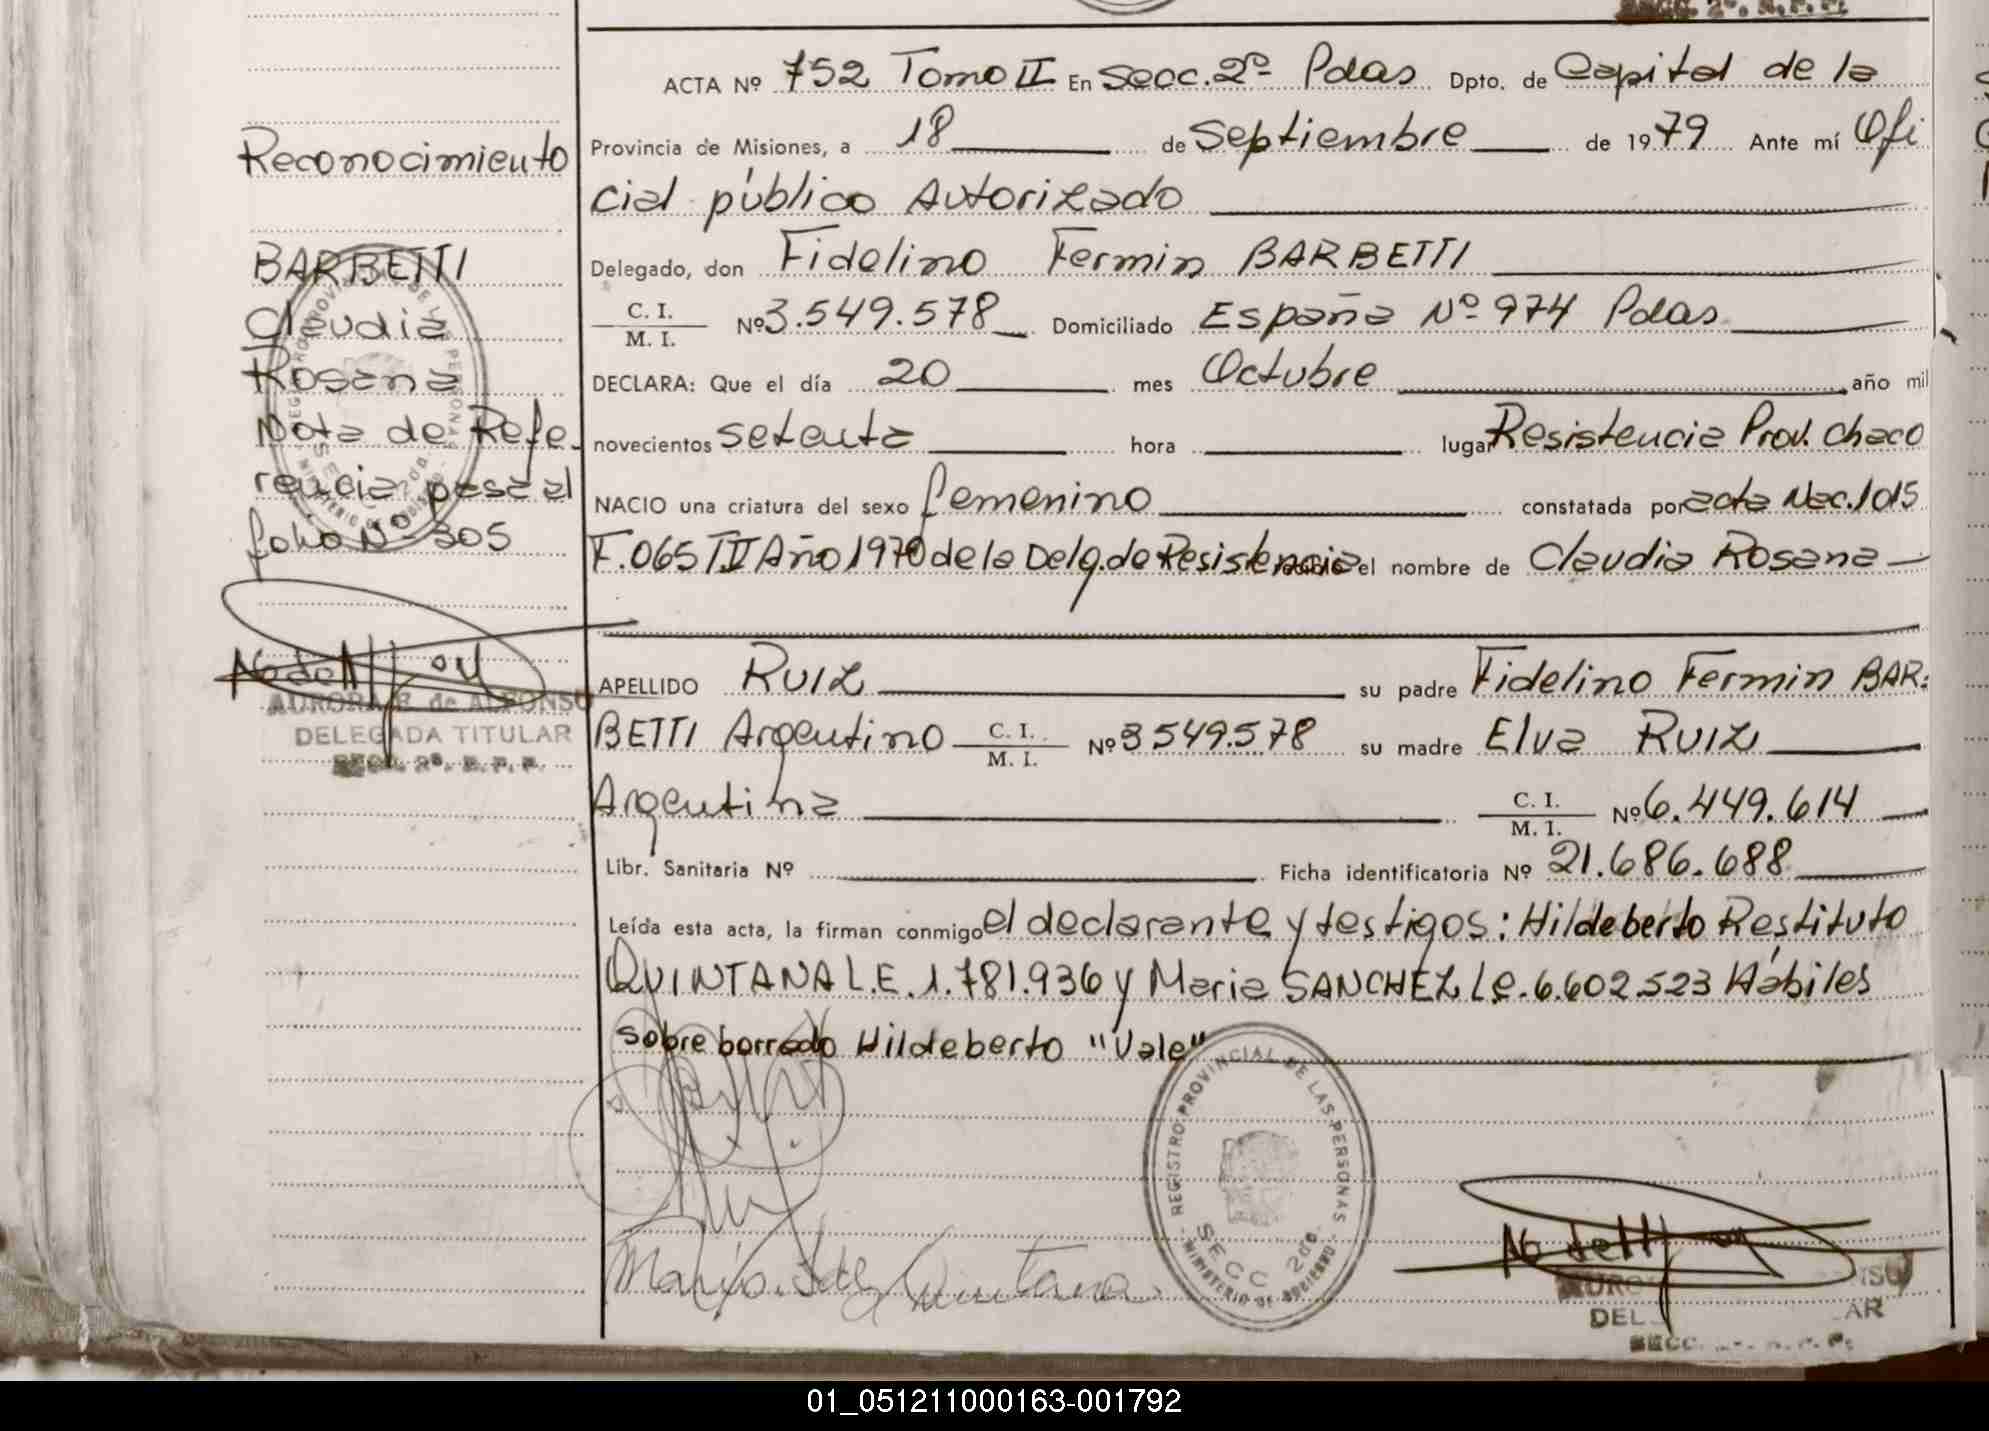 SECC. 2ª. R.P.P.
ACTA Nº 752 Tomo II En Secc. 2º Pdas Dpto. de Capital de la
Provincia de Misiones, a 18 de Septiembre de 1979 Ante mí Ofi
cial público Autorizado
Delegado, don Fidelino Fermin BARBETTI
C. I.
M. I.
Nº 3.549.578 Domiciliado España Nº 974 Pdas
DECLARA: Que el día 20 mes Octubre año mil
novecientos setenta hora lugar Resistencia Prov. Chaco
NACIO una criatura del sexo femenino constatada por acta Nac. 1015
F. 065 T II Año 1970 de la Delg. de Resistencia el nombre de Claudia Rosana
APELLIDO RUIZ su padre Fidelino Fermin BAR-
BETTI Argentino C. I. M. I. Nº 3549.578 su madre Elva RUIZ
Argentina C. I. M. I. Nº 6.449.614
Libr. Sanitaria Nº Ficha identificatoria Nº 21.686.688
Leída esta acta, la firman conmigo el declarante y testigos: Hildeberto Restituto
QUINTANA L.E. 1.781.936 y Maria SANCHEZ L.C. 6.602.523 Hábiles
Sobre borrado Hildeberto "Vale"
Maria S de Quintana
REGISTRO PROVINCIAL DE LAS PERSONAS
SECC 2da.
MINISTERIO DE GOBIERNO
Reconocimiento
BARBETTI
Claudia
Rosana
Nota de Refe-
rencia pasa al
folio Nº 305
REGISTRO PROVINCIAL DE LAS PERSONAS
SECC 2da.
MINISTERIO DE GOBIERNO
AURORA de ALFONSO
DELEGADA TITULAR
SECC. 2ª. R.P.P.
01_051211000163-001792